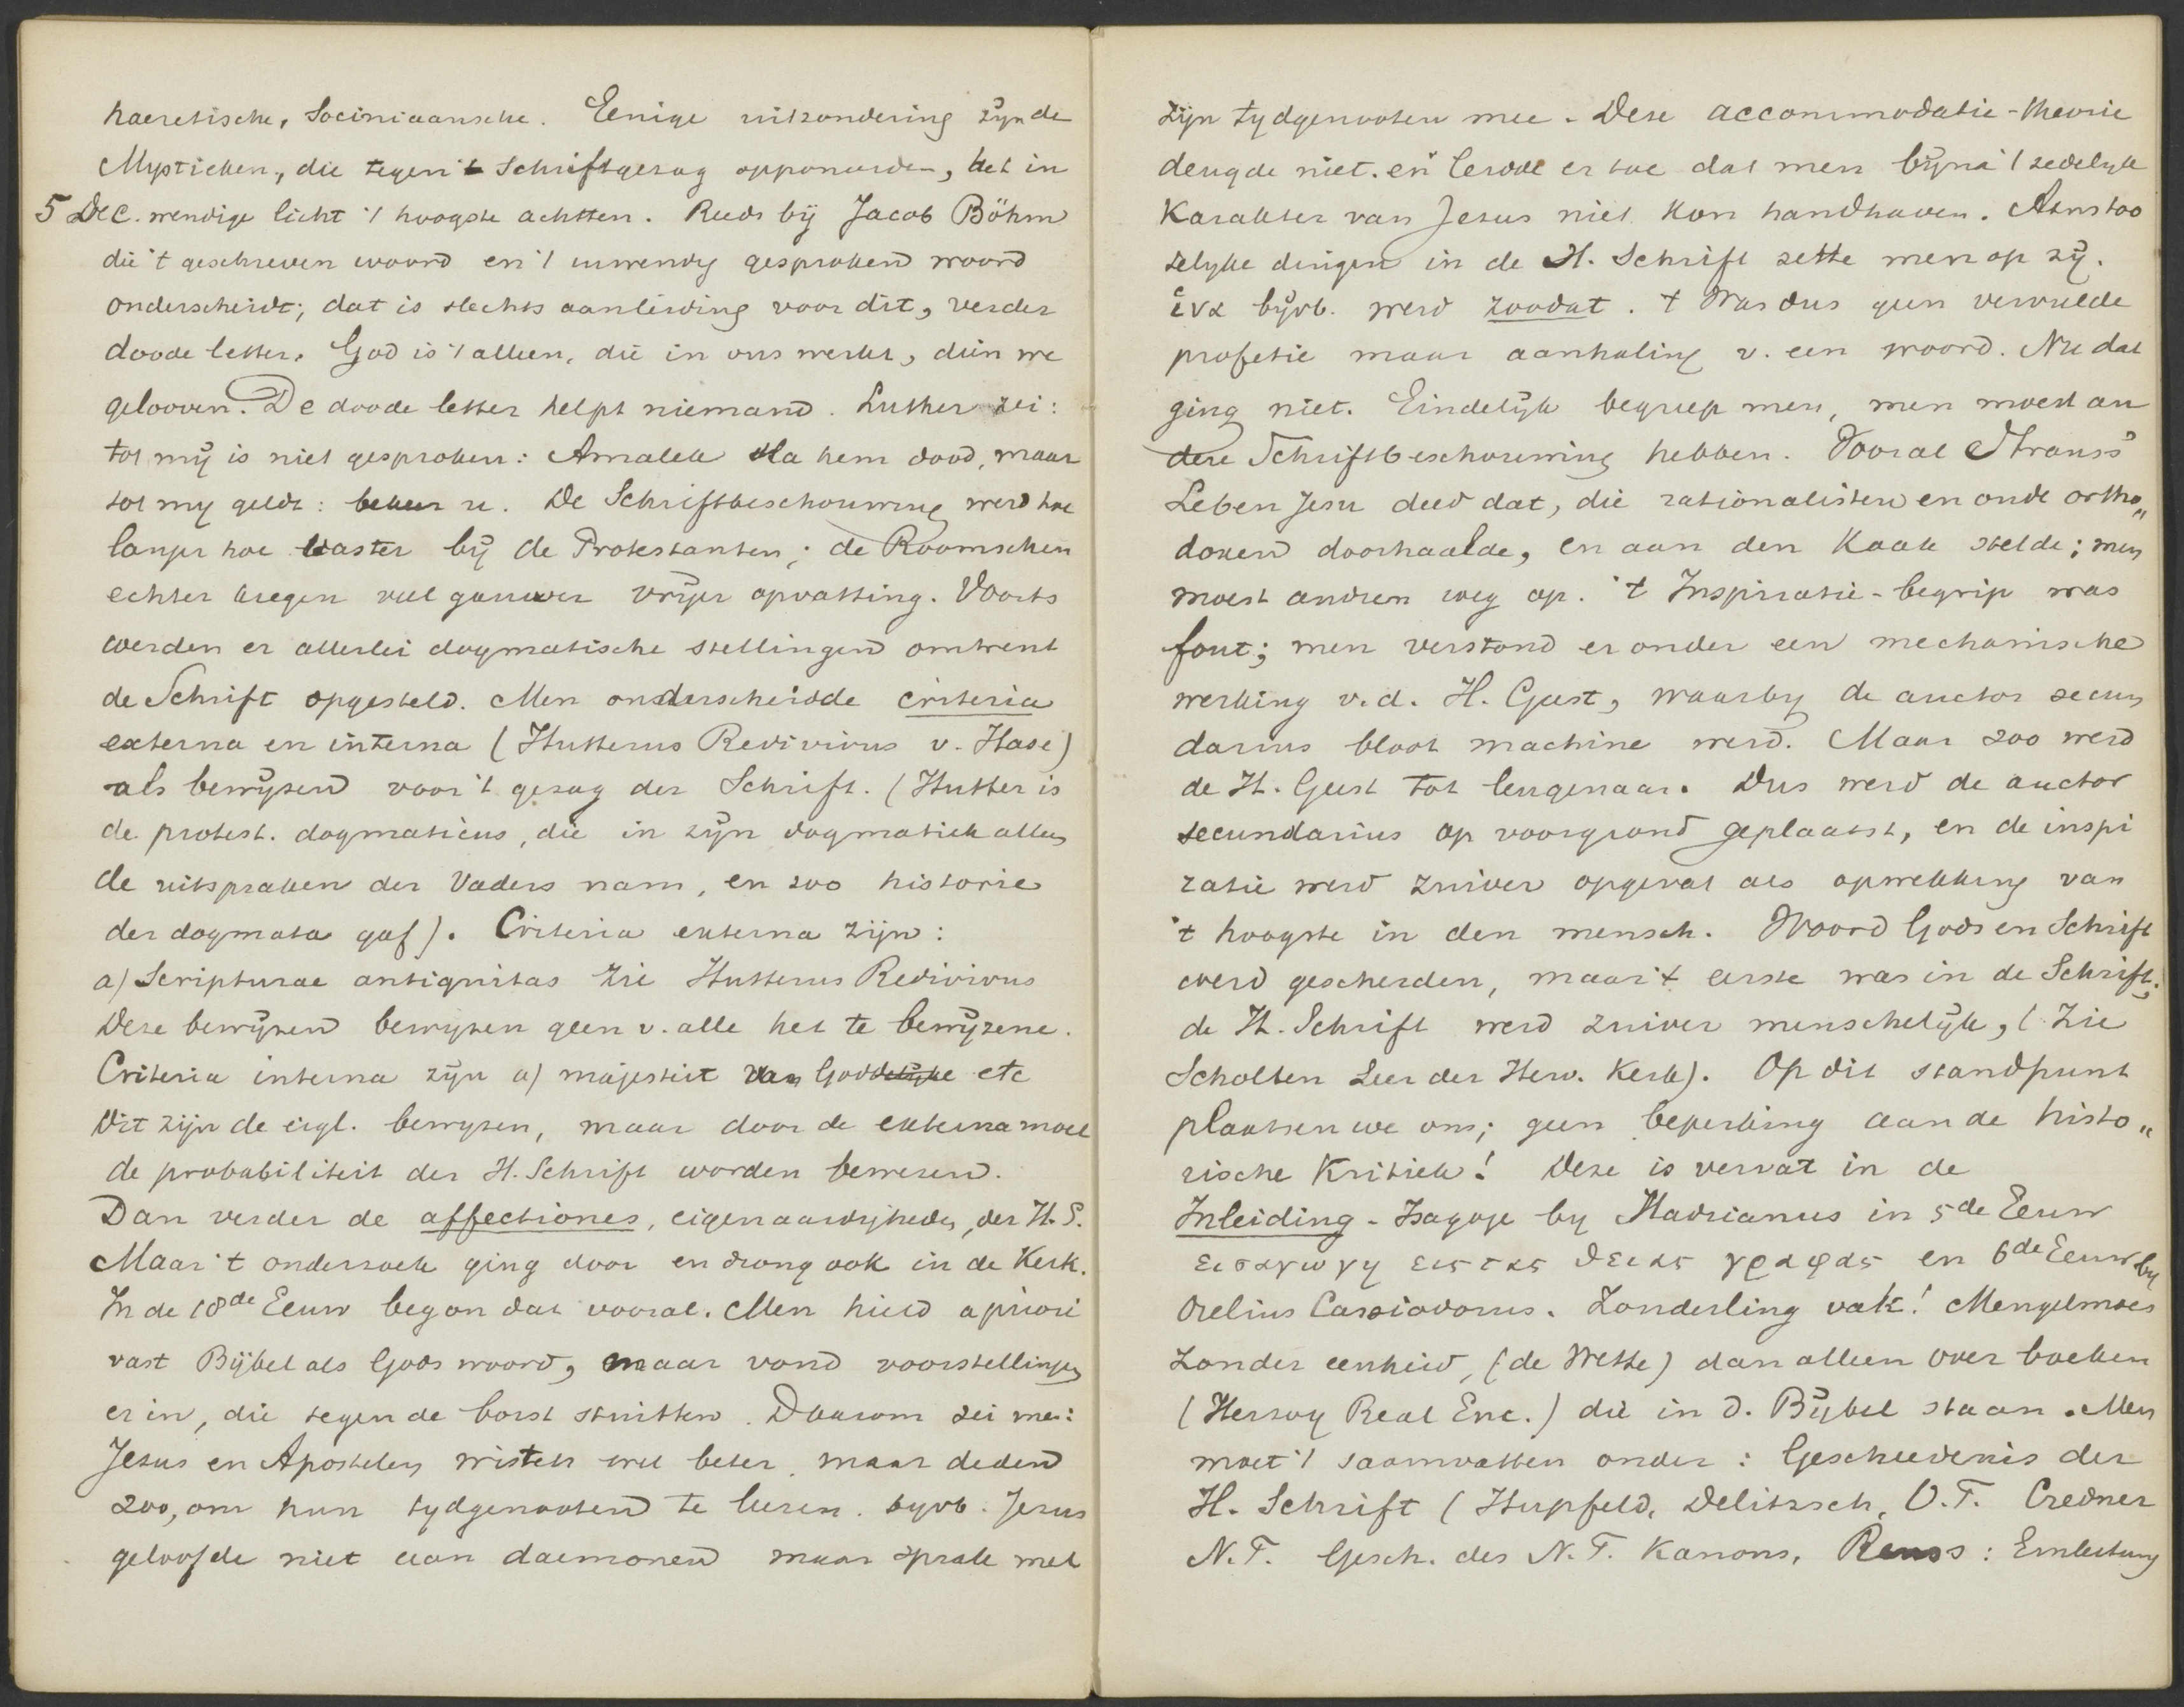 haeretische, Sociniaansche. Eenige uitzondering zijn de
Mystieken, die tegen 't Schriftgezag opponeerden, het in
5 Dec. wendige licht 't hoogste achtten. Reeds bij Jacob Böhm
die 't geschreven woord en 't inwendig gesproken woord
onderscheidt; dat is slechts aanleiding voor dit, verder
doode letter. God is 't alleen, die in ons werkt, dien we
gelooven. De doode letter helpt niemand. Luther zei:
tot mij is niet gesproken: Amalek sla hem dood, maar
tot my geldt: bekeer u. De Schriftbeschouwing werd hoe
langer hoe vaster bij de Protestanten; de Roomschen
echter kregen veel gauwer vrijer opvatting. Voorts
werden er allerlei dogmatische stellingen omtrent
de Schrift opgesteld. Men onderscheidde criteria
externa en interna (Hutterus Redivivus v. Hase)
als bewijzen voor 't gezag der Schrift. (Hutter is
de protest. dogmaticus, die in zijn dogmatiek allen
de uitspraken der Vaders nam, en zoo historie
der dogmata gaf). Criteria externa zijn:
a) Scripturae antiquitas zie Hutterus Redivivus
Deze bewijzen bewyzen geen v. alle het te bewijzene.
Criteria interna zijn a) majesteit van Goddelijke etc
Dit zijn de eigl. bewyzen, maar door de externa moet
de probabiliteit der H. Schrift worden bewezen.
Dan verder de affectiones, eigenaardigheden, der H. S.
Maar 't onderzoek ging door en drong ook in de Kerk.
In de 18de Eeuw begon dat vooral. Men hield a priori
vast Bijbel als Gods woord, maar vond voorstellingen
er in, die tegen de borst stuitten. Daarom zei men:
Jezus en Apostelen wisten wel beter, maar deden
zoo, om hun tydgenooten te leeren. byvb. Jezus
geloofde niet aan daemonen maar sprak met
zijn tydgenooten mee. Deze accommodatie-theorie
deugde niet. en leidde er toe dat men bijna 't zedelyk
Karakter van Jezus niet kon handhaven. Aanstoo
telyke dingen in de H. Schrift zette men op zij.
ἵνα bijvb. werd zoodat. 't Was dus geen vervulde
profetie maar aanhaling v. een woord. Nu dat
ging niet. Eindelijk begreep men, men moest an
dere Schriftbeschouwing hebben. Vooral Strauss'
Leben Jesu deed dat, die rationalisten en oude ortho„
doxen doorhaalde, en aan den Kaak stelde; men
moest andren weg op. 't Inspiratie-begrip was
fout; men verstond er onder een mechanische
werking v.d. H. Geest, waarby de auctor secun
darius bloot machine werd. Maar zoo werd
de H. Geest tot leugenaar. Dus werd de auctor
secundarius op voorgrond geplaatst, en de inspi
ratie werd zuiver opgevat als opwekking van
't hoogste in den mensch. Woord Gods en Schrift
werd gescheiden, maar 't eerste was in de Schrift;
de H. Schrift werd zuiver menschelijk, (Zie
Scholten Leer der Herv. Kerk). Op dit standpunt
plaatsen we ons; geen beperking aan de histo„
rische Kritiek! Deze is vervat in de
Inleiding - Isagoge by Hadrianus in 5de Eeuw
εισαγωγη εις τας θειας γραφας en 6de Eeuw by
Orelius Cassiodorus. Zonderling vak! Mengelmoes
zonder eenheid, (de Wette) dan alleen over boeken
(Herzog Real Enc.) die in d. Bijbel staan. Men
moet 't saamvatten onder: Geschiedenis der
H. Schrift (Hupfeld, Delitzsch, O.T. Credner
N.T. Gesch. des N.T. Kanons, Reuss: Einleitung